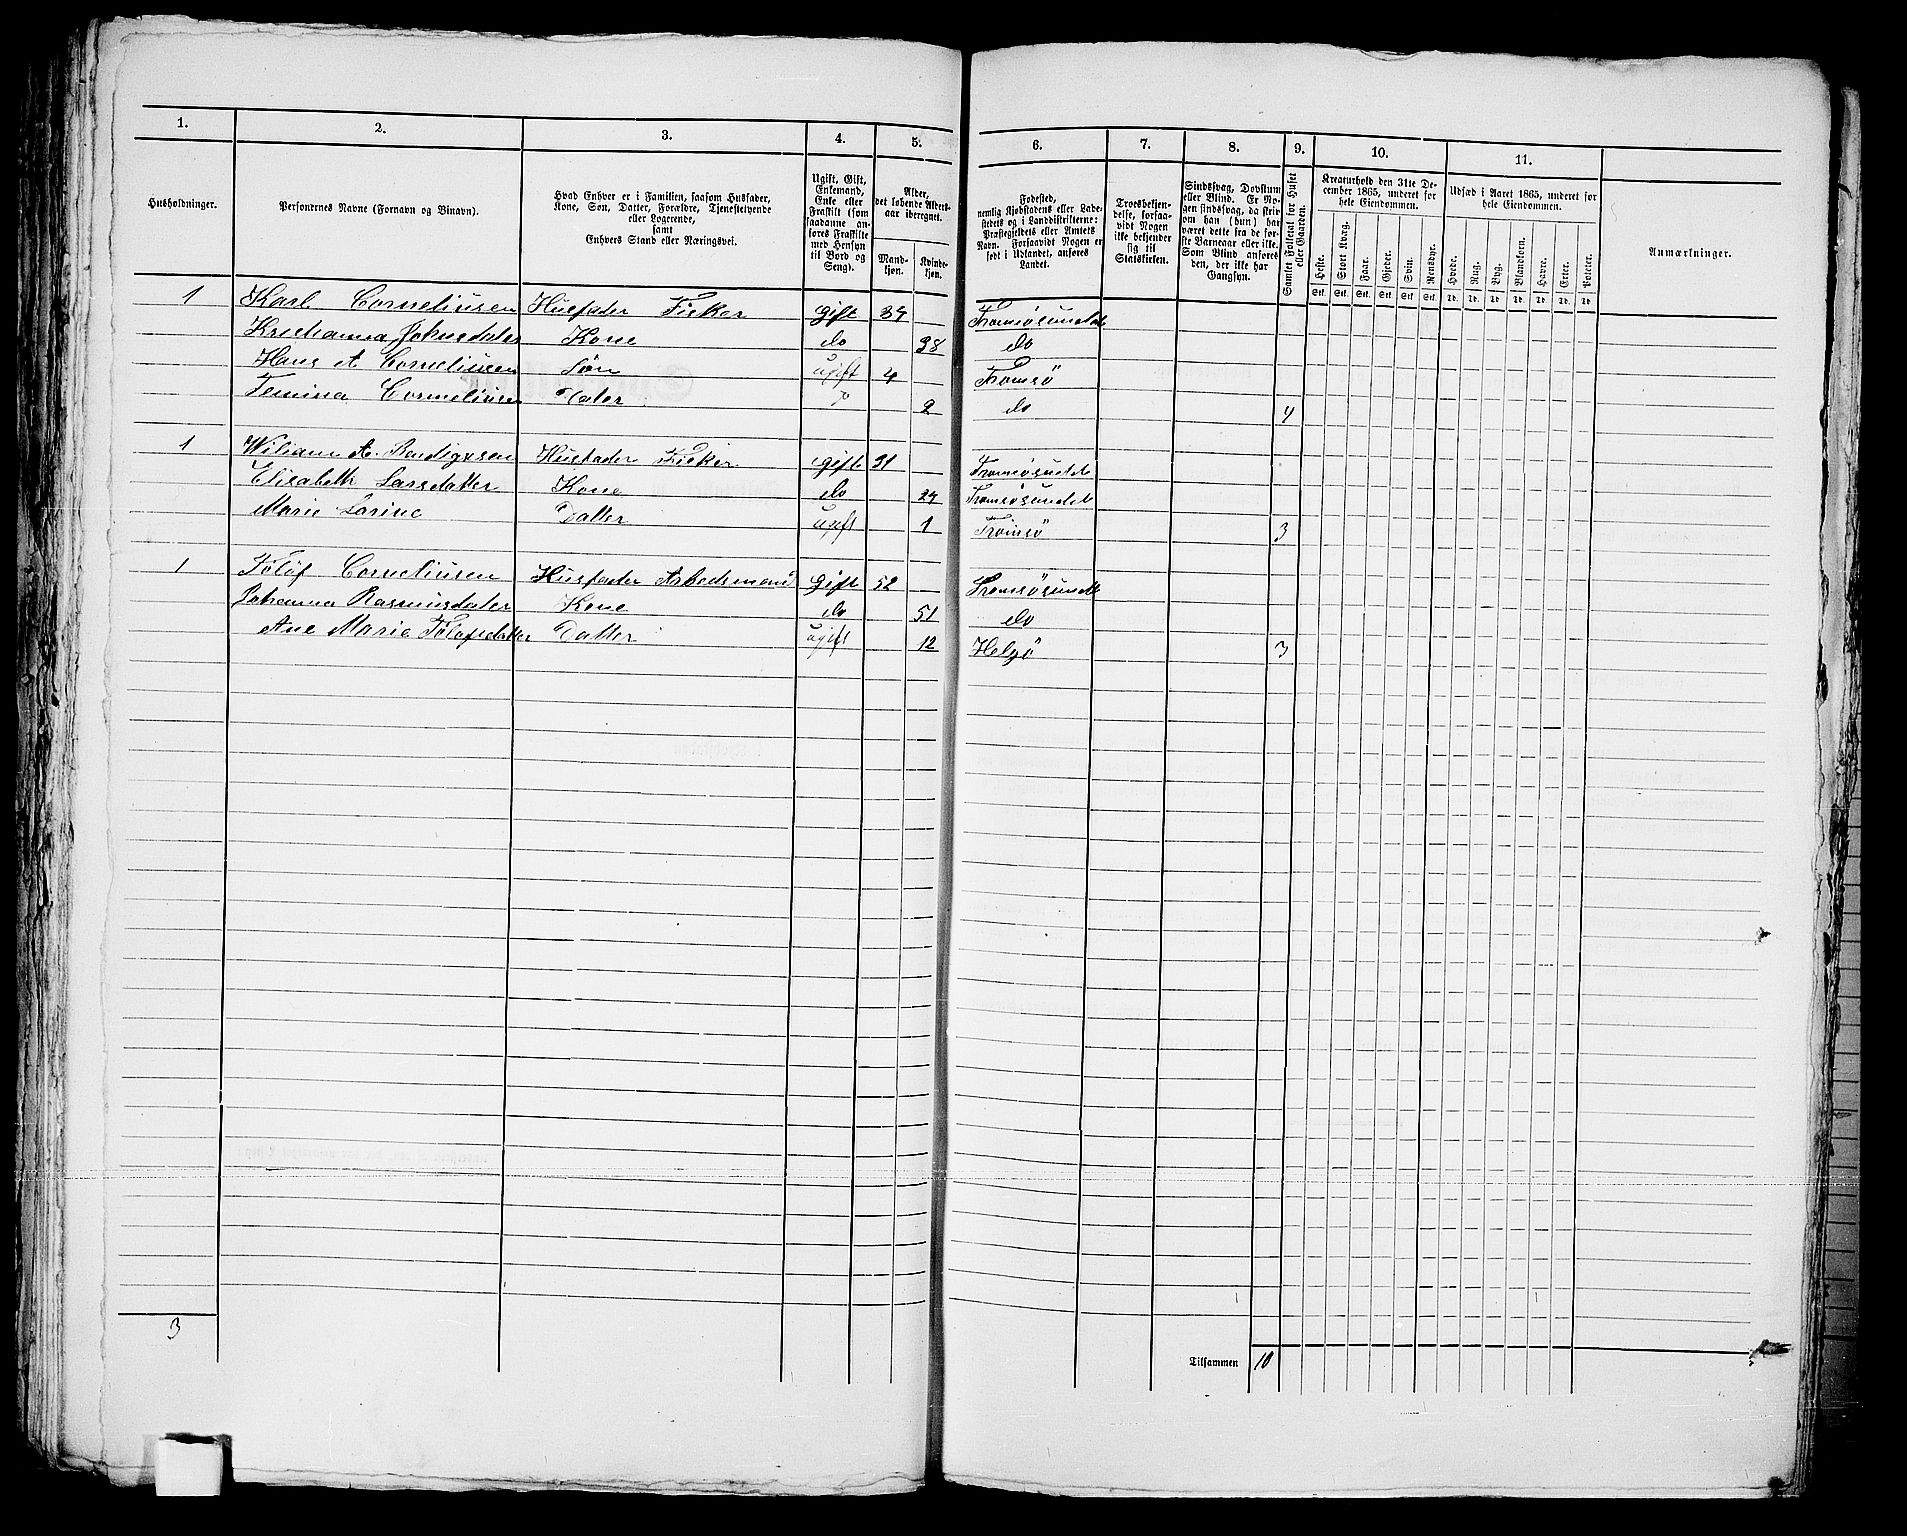 1. 2. 3. 4. 5. 6. 7. 8. 9. 10. 11.
Husholdninger.
Personernes Navne (Fornavn og Binavn).
Hvad Enhver er i Familien, saasom Husfader,
Kone, Søn, Datter, Forældre, Tjenestetyende
eller Logerende,
samt
Enhvers Stand eller Næringsvei.
Ugift, Gift,
Enkemand,
Enke eller
Fraskilt (som
saadanne an-
føres Fraskilte
med Hensyn
til Bord og
Seng).
Alder,
det løbende Alders-
aar iberegnet.
Mand-
kjøn.
Kvinde-
kjøn.
Fødested,
nemlig Kjøbstadens eller Lade-
stedets og i Landdistrikterne:
Præstegjeldets eller Amtets
Navn. Forsaavidt Nogen er
født i Udlandet, anføres
Landet.
Troesbekjen-
delse, forsaa-
vidt Nogen
ikke bekjender
sig til
Statskirken.
Sindssvag, Døvstum
eller Blind. Er No-
gen sindssvag, da skriv
om han (hun) har
været dette fra de før-
ste Barneaar eller ikke.
Som Blind anføres
den, der ikke har
Gangsyn.
Samlet Folketal for Huset
eller Gaarden.
Kreaturhold den 31te De-
cember 1865, underet for
hele Eiendommen.
Heste. Stort Kvæg. Faar. Gjeder. Svin. Rensdyr.
Stk. Stk. Stk. Stk. Stk. Stk.
Udsæd i Aaret 1865, underet for
hele Eiendommen.
Hvede. Rug. Byg. Blandkorn. Havre. Erter. Poteter.
Td. Td. Td. Td. Td. Td. Td.
Anmærkninger.
1 Karl Corneliusen Husfader Fisker gift 34 Tromsøsundet
Kristianna Johnsdater Kone do 38 do
Hans A Corneliusen Søn ugift 4 Tromsø
Corneliusen Dater do 2 do 4
1 Wiliam A. Husfader Fisker gift 31 Tromsøsundet
Elisabeth Larsdatter Kone do 24 Tromsøsundet
Marie Larine Datter ugift 1 Tromsø 3
1 Tolof Corneliusen Husfader Arbedsmand gift 52 Tromsøsundet
Johanna Rasmusdater Kone do 51 do
Ane Marie Tolofsdatter Datter ugift 12 Helgø 3
3
Tilsammen 10